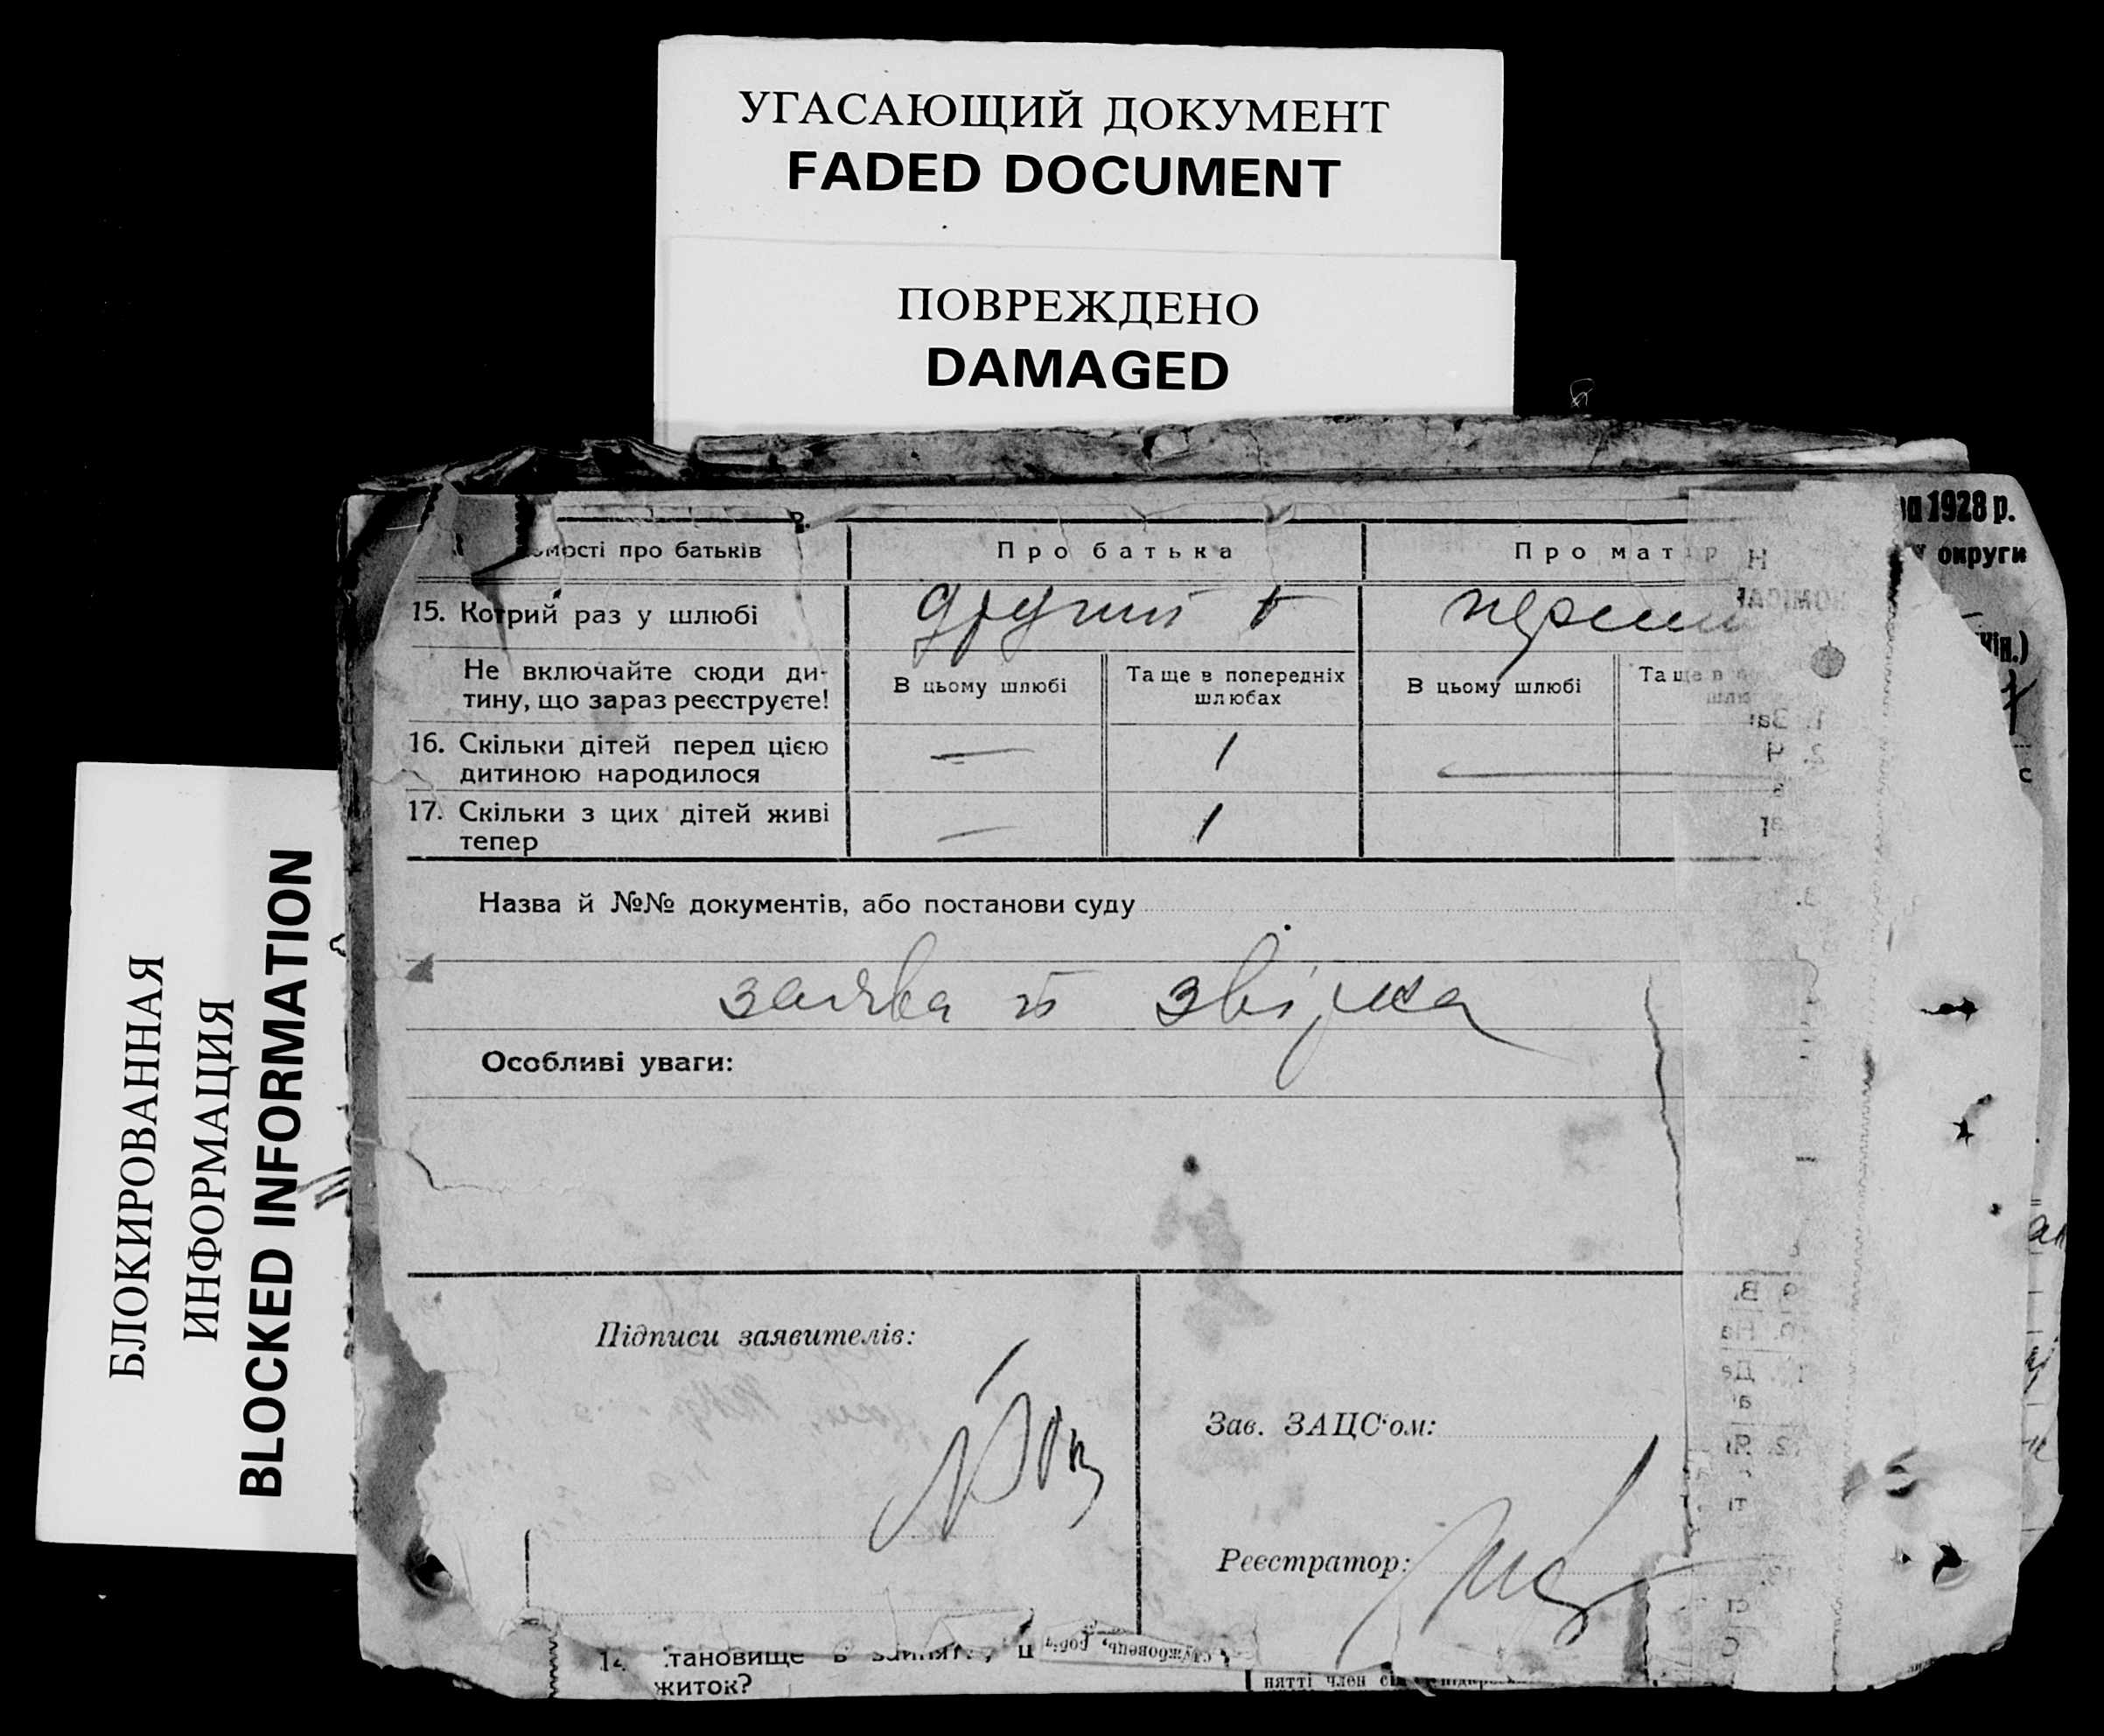 УГАСАЮЩИЙ ДОКУМЕНТ
FADED DOCUMENT
ПОВРЕЖДЕНО
DAMAGED
БЛОКИРОВАННАЯ
ИНФОРМАЦИЯ
BLOCKED INFORMATION
1928 р.
округи
омості про батьків
Про батька
Про мат
15. Котрий раз у шлюбі
другий
перши
Не включайте сюди ди-
тину, що зараз реєструєте!
В цьому шлюбі
Та ще в попередніх
шлюбах
В цьому шлюбі
Та ще в
16. Скільки дітей перед цією
дитиною народилося
— 1
17. Скільки з цих дітей живі
тепер
— 1
Назва й №№ документів, або постанови суду
заява й звірка
Особливі уваги:
Підписи заявителів:
Зав. ЗАЦС'ом:
Реєстратор:
14 тановище в
житок?
службовець, робіт
нятті член